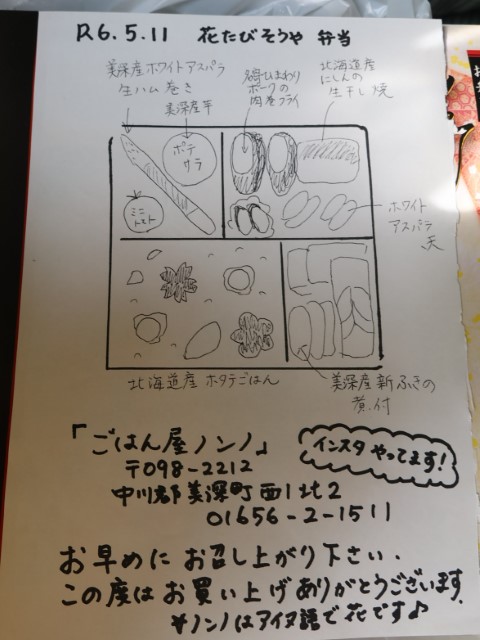 R6.5.11 花たびそうや 弁当
美深産ホワイトアスパラ
生ハム巻き
美深産芋
ひまわり
ポークの
肉巻フライ
北海道産
にしんの
生干し焼
ポテ
サラ
ミニ
トマト
ホワイト
アスパラ
天
北海道産 ホタテごはん
美深産新ふきの
煮付
「ごはん屋ノンノ」
〒098-2212
中川郡美深町西1北2
01656-2-1511
インスタ やってます!
お早めに お召し上がり下さい.
この度は お買い上げありがとうございます.
※ノンノはアイヌ語で花です♪